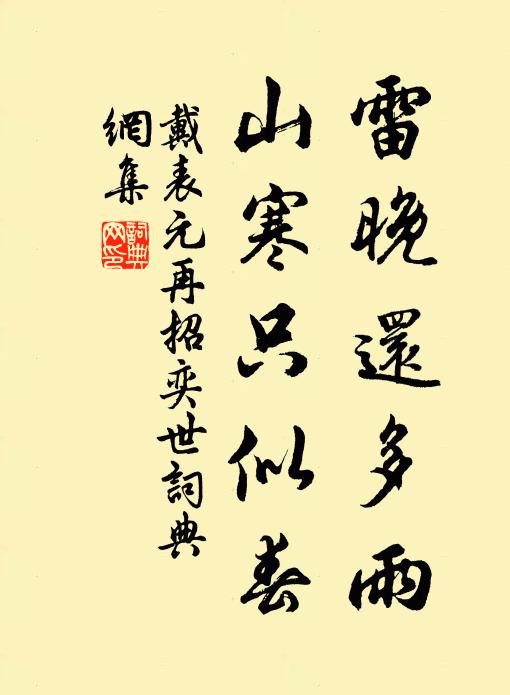 雷晚還多雨
山寒只似春
戴表元再招奕世詞典
網集
詞典網印